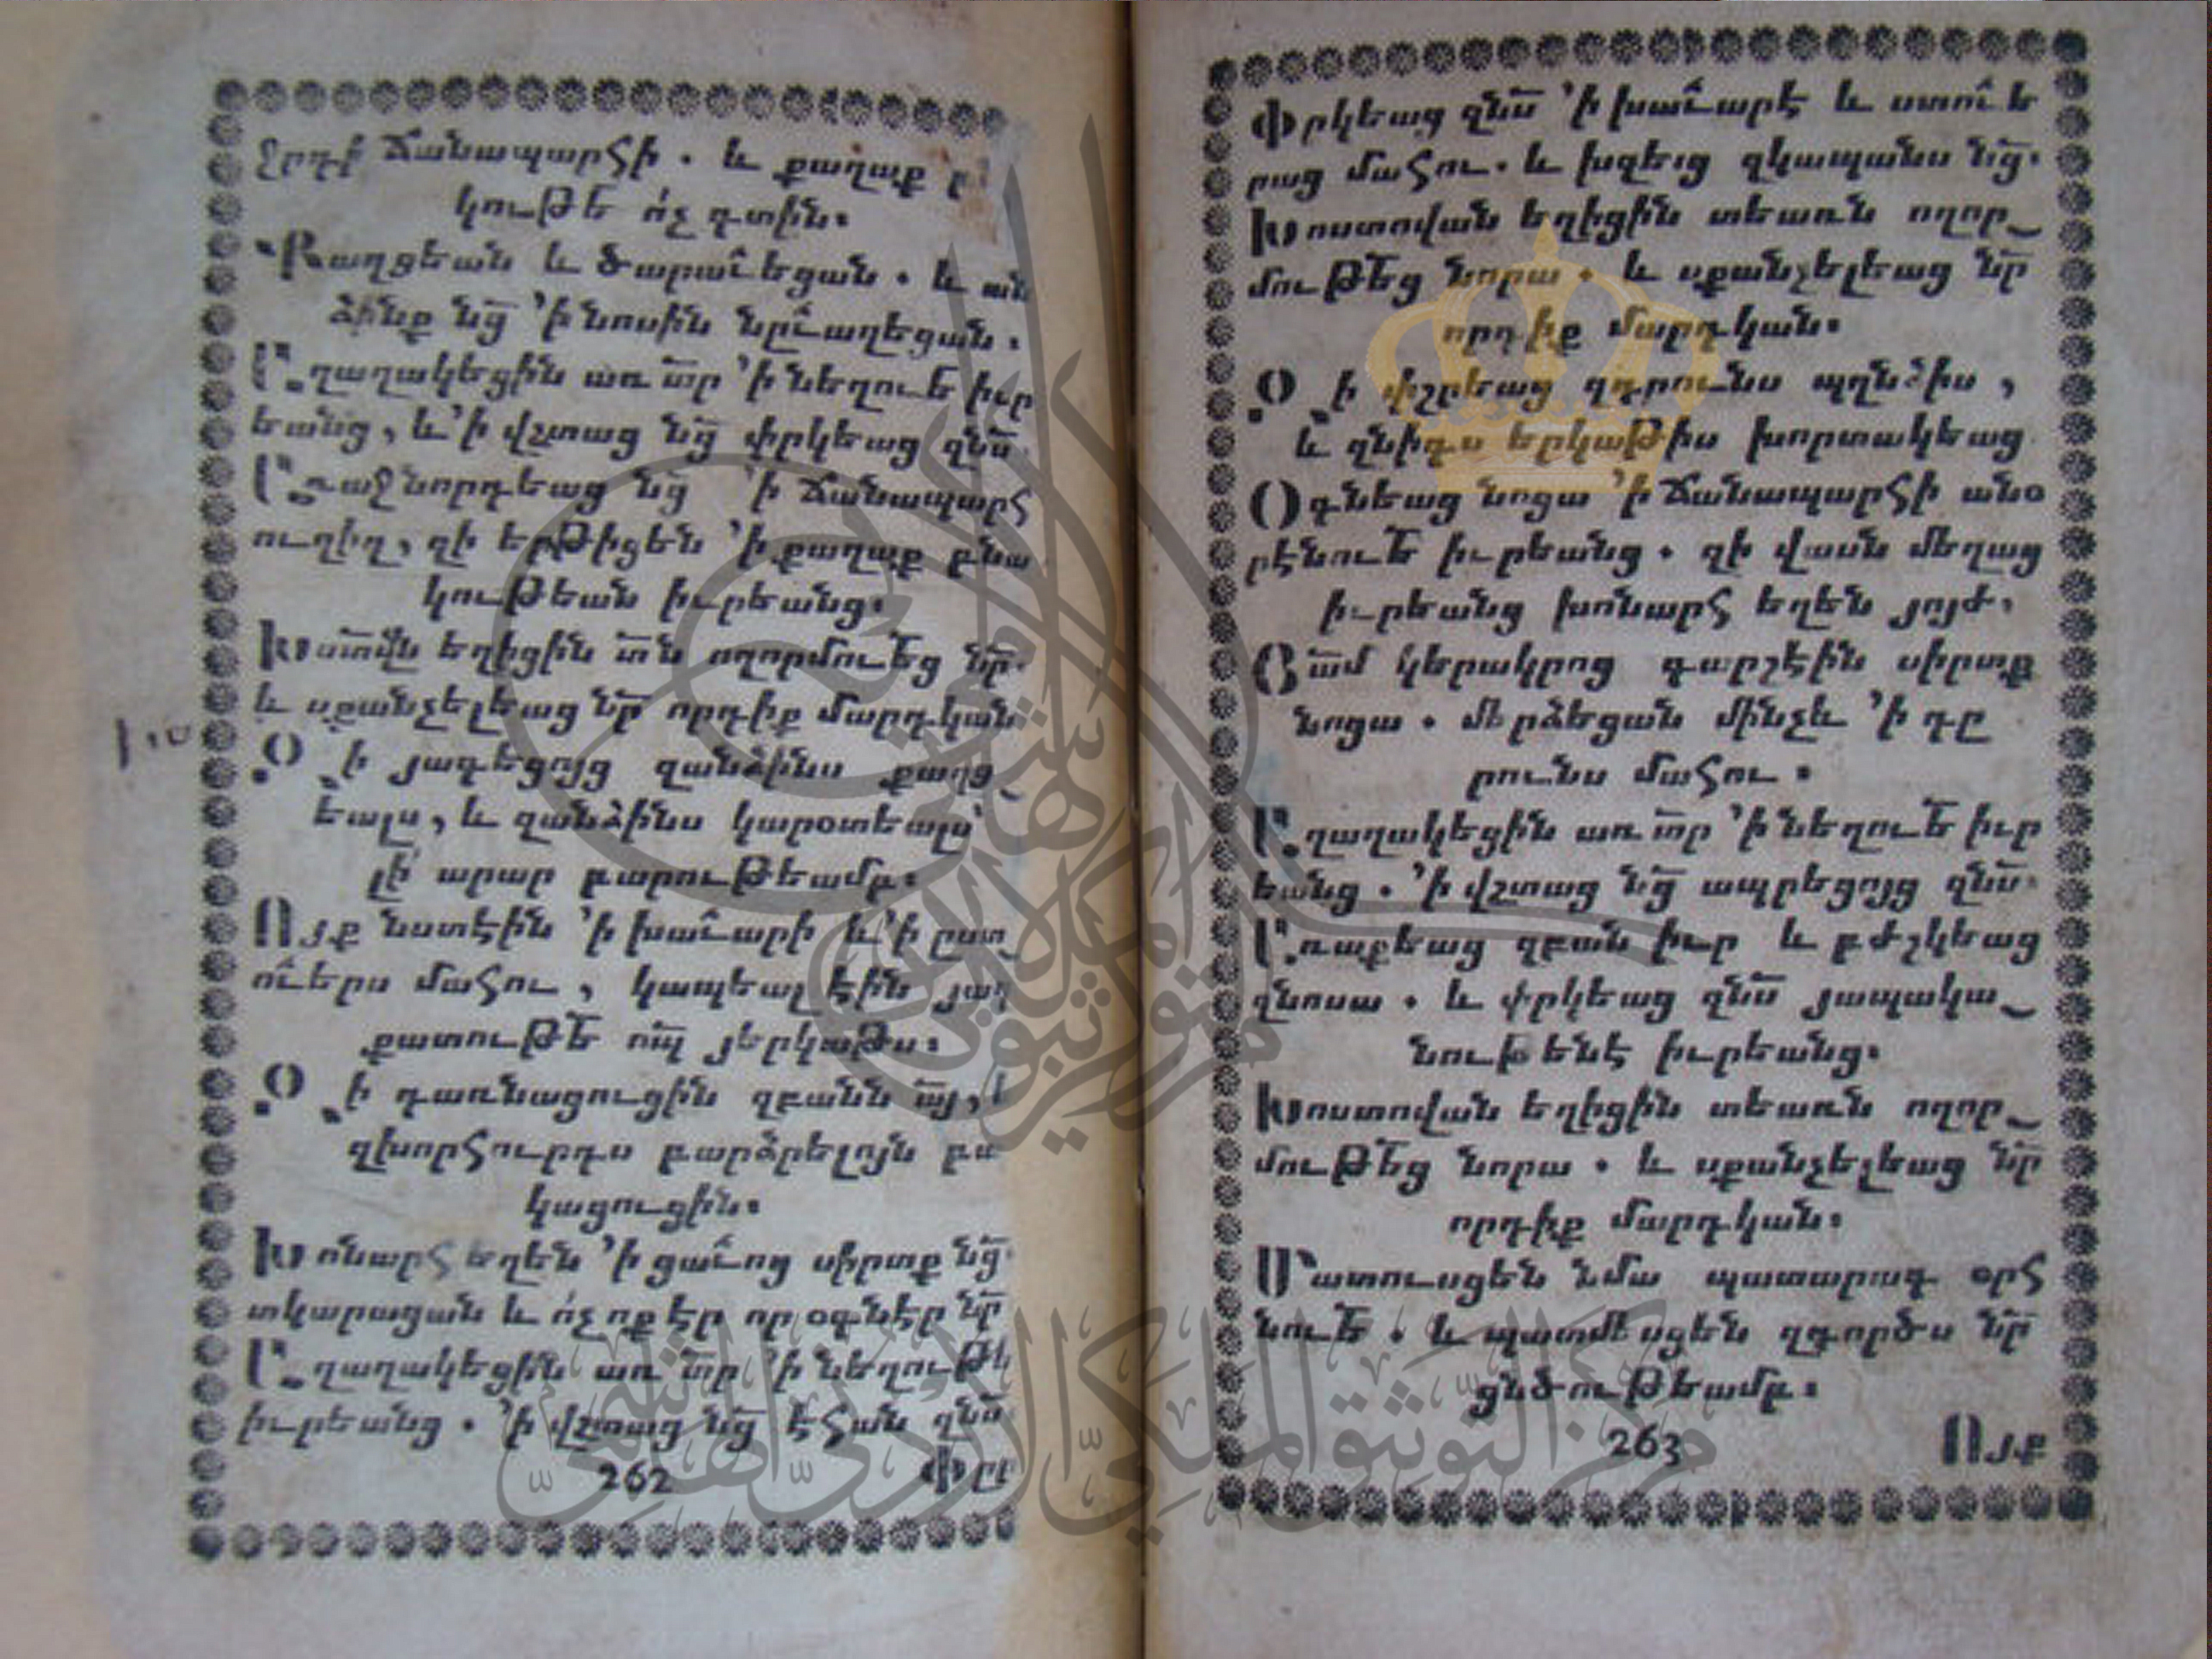 ջրդի ճանապարհի . և քաղաք բ
կութե՟ ո՛չ գտին։
Քաղցեան և ծարաւեցան . և ան
ձինք նց՟ ՚ի նոսին նըւաղեցան .
Աղաղակեցին առ տ՟ր ՚ի նեղուե՟ իւր
եանց, և ՚ի վշտաց նց՟ փրկեաց զնս՟
Առաջնորդեաց նց՟ ՚ի ճանապարհ
ուղիղ, զի երթիցեն ՚ի քաղաք բնա
կութեան իւրեանց։
Խստվն՟ եղիցին տ՟ն ողորմուե՟ց նր՟.
և սքանչելեաց նր՟ որդիք մարդկան
Զի յագեցոյց զանձինս քաղց
եալս, և զանձինս կարօտեալս՝
լի՛ արար բարութեամբ։
Ույք նստէին ՚ի խաւարի և ՚ի ըստ
ուերս մահու, կապեալ էին յաղ
քատութե՟ ոպ՟ յերկաթս։
Զի դառնացուցին զբանն ա՟յ, և
զխորհուրդս բարձրելոյն բա
կացուցին։
Խոնարհ եղեն ՚ի ցաւոց սիրտք նց՟.
տկարացան և ո՛չ ոք էր որ օգնէր նր՟
Աղաղակեցին առ տ՟ր ՚ի նեղութե
իւրեանց . ՚ի վշտաց նց՟ էհան զնս՟
262
Փրկ
Փրկեաց զնս՟ ՚ի խաւարէ և ստուե
րաց մահու . և խզեաց զկապանս նց՟.
Խոստովան եղիցին տեառն ողոր
մութե՟ց նորա . և սքանչելեաց նր՟
որդիք մարդկան։
Զի փշրեաց զդրունս պղնձիս ,
և զնիգս երկաթիս խորտակեաց
Օգնեաց նոցա ՚ի ճանապարհի անօ
րէնուե՟ իւրեանց . զի վասն մեղաց
իւրեանց խոնարհ եղեն յոյժ .
Զա՟մ կերակրոց գարշէին սիրտք
նոցա . մերձեցան մինչև ՚ի դը
րունս մահու .
Աղաղակեցին առ տ՟ր ՚ի նեղուե՟ իւր
եանց . ՚ի վշտաց նց՟ ապրեցոյց զնս՟
Առաքեաց զբան իւր և բժշկեաց
զնոսա . և փրկեաց զնս՟ յապակա
նութենէ իւրեանց։
Խոստովան եղիցին տեառն ողոր
մութե՟ց նորա . և սքանչելեաց նր՟
որդիք մարդկան։
Մատուսցեն նմա պատարագ օրհ
նուե՟ . և պատմեսցեն զգործս նր՟
ցնծութեամբ։
263
Ույք
مركز التوثيق الملكي الأردني الهاشمي